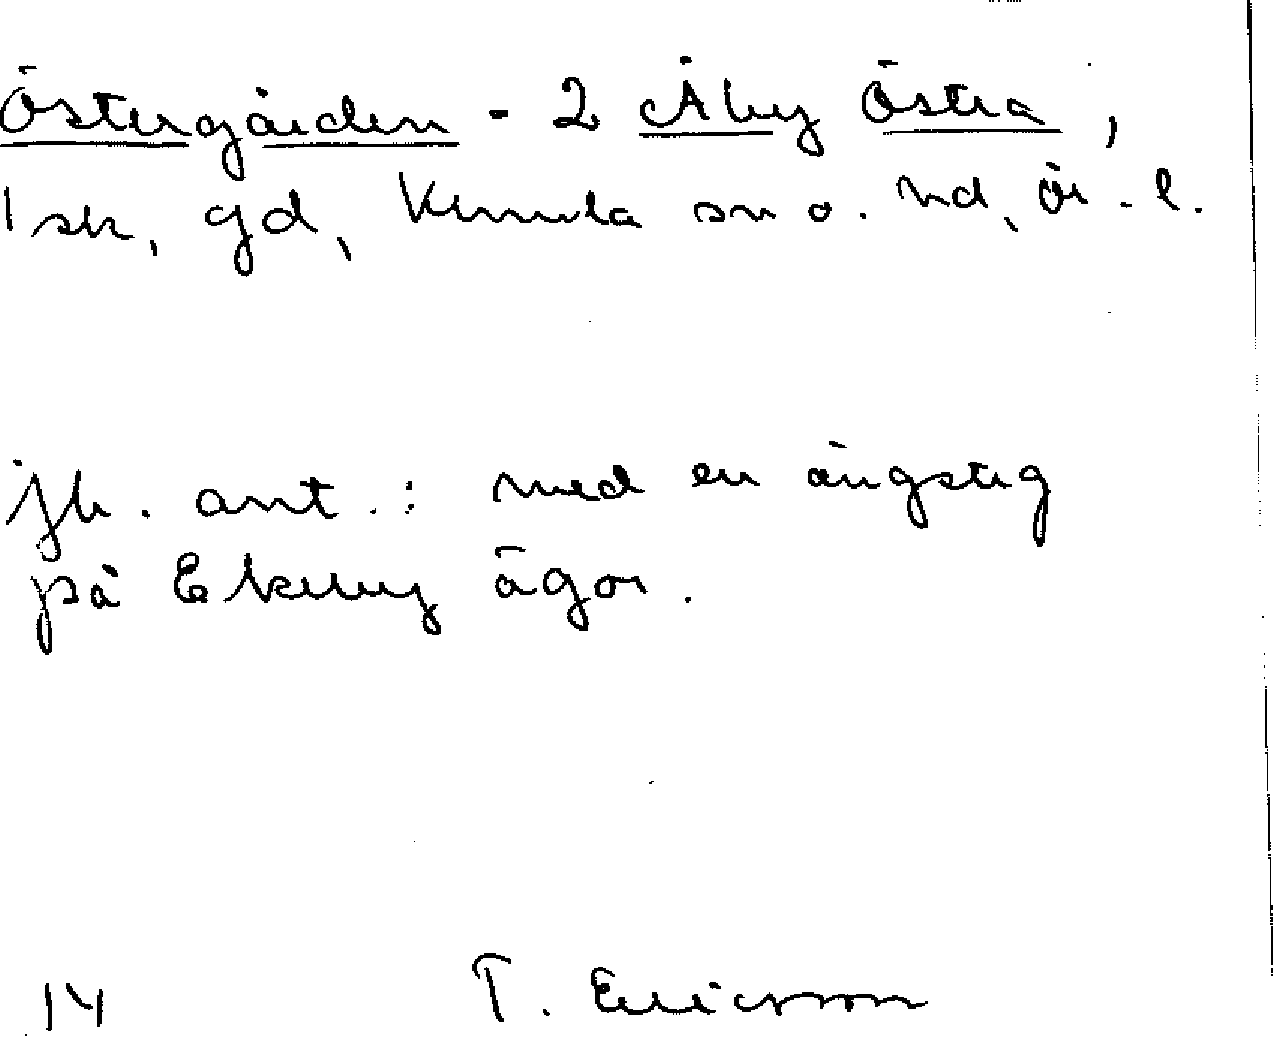 Östergården - 2 Åby Östra,
1 sk, gd, Kumla sn o. hd, Ör. l.
jb. ant.: med en ängsteg
på Ekeby ägor.
14 T. Ericsson